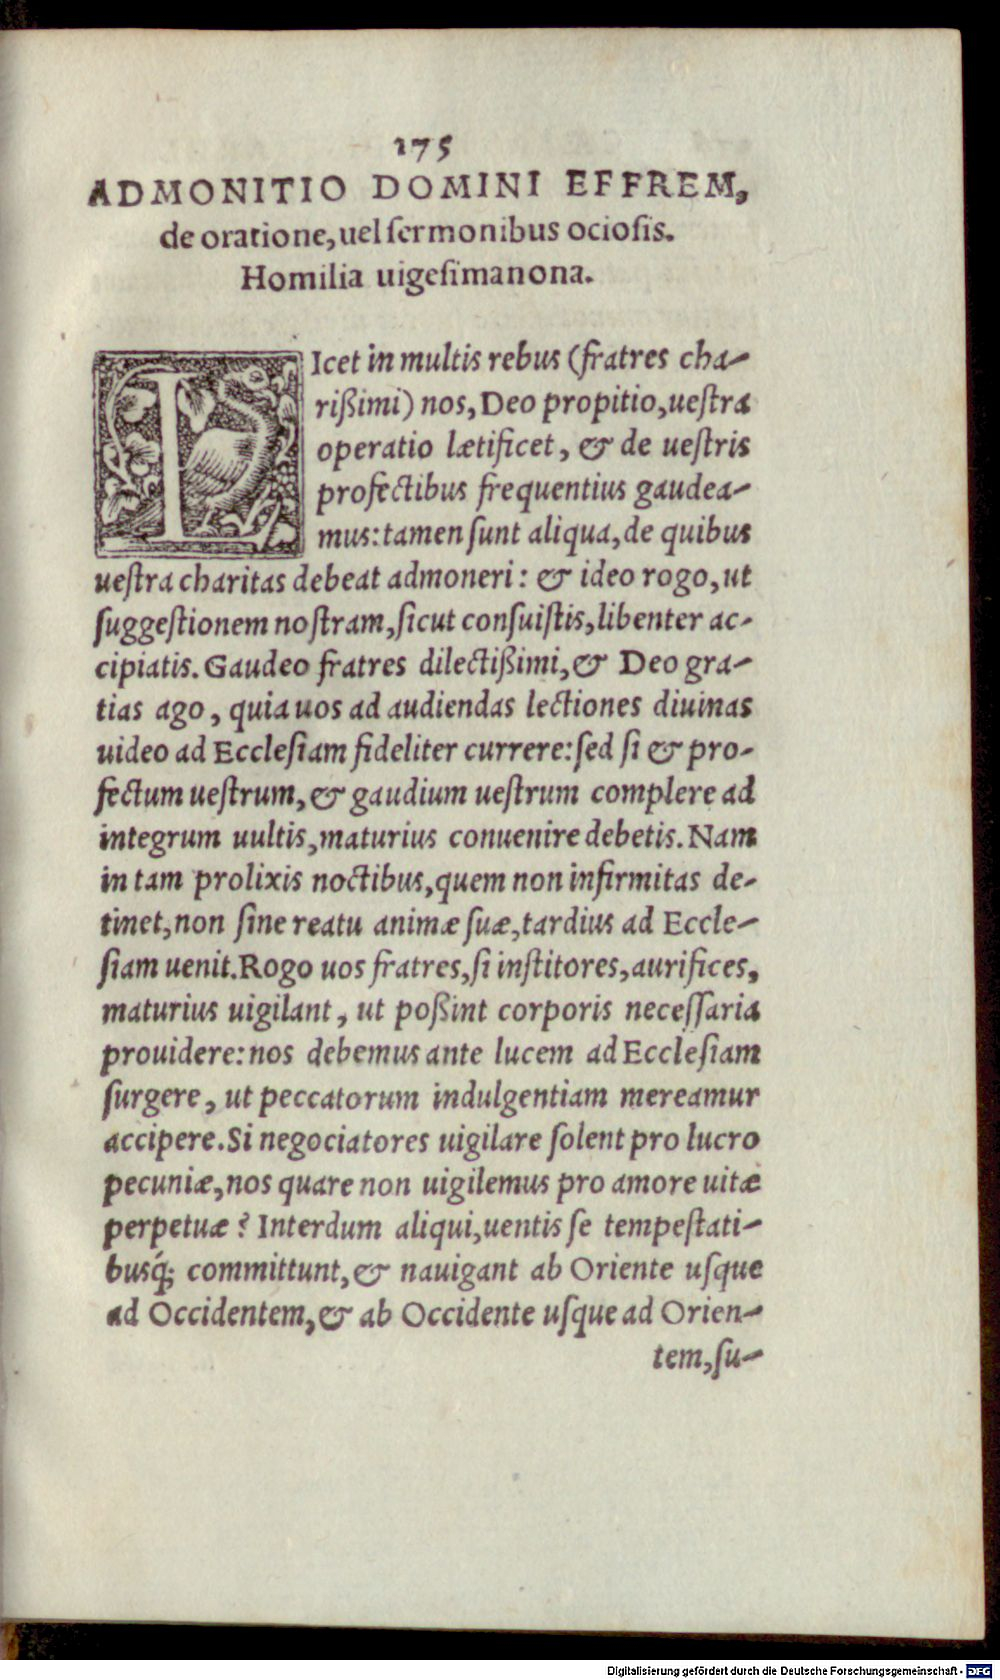 175
ADMONITIO DOMINI EFFREM,
de oratione, uel sermonibus ociosis.
Homilia uigesimanona.
LIcet in multis rebus (fratres cha-
rißimi) nos, Deo propitio, uestra
operatio lætificet, & de uestris
profectibus frequentius gaudea-
mus: tamen sunt aliqua, de quibus
uestra charitas debeat admoneri: & ideo rogo, ut
suggestionem nostram, sicut consuistis, libenter ac-
cipiatis. Gaudeo fratres dilectißimi, & Deo gra-
tias ago, quia uos ad audiendas lectiones diuinas
uideo ad Ecclesiam fideliter currere: sed si & pro-
fectum uestrum, & gaudium uestrum complere ad
integrum uultis, maturius conuenire debetis. Nam
in tam prolixis noctibus, quem non infirmitas de-
tinet, non sine reatu animæ suæ, tardius ad Eccle-
siam uenit. Rogo uos fratres, si institores, aurifices,
maturius uigilant, ut poßint corporis necessaria
prouidere: nos debemus ante lucem ad Ecclesiam
surgere, ut peccatorum indulgentiam mereamur
accipere. Si negociatores uigilare solent pro lucro
pecuniæ, nos quare non uigilemus pro amore uitæ
perpetuæ? Interdum aliqui, uentis se tempestati-
busq́; committunt, & nauigant ab Oriente usque
ad Occidentem, & ab Occidente usque ad Orien-
tem, su-
Digitalisierung gefördert durch die Deutsche Forschungsgemeinschaft - DFG